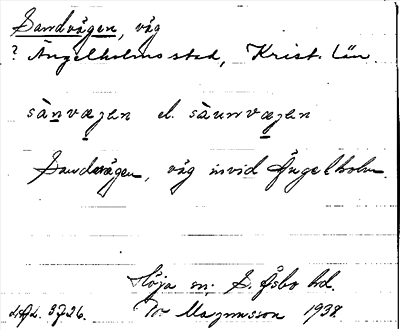 Sandvägen, väg
? Ängelholms stad, Krist. län.
sànvægen el. sàunvægen
Sandvägen, väg invid Ängelholm.
Höja sn. S. Åsbo hd.
Tor Magnusson 1938.